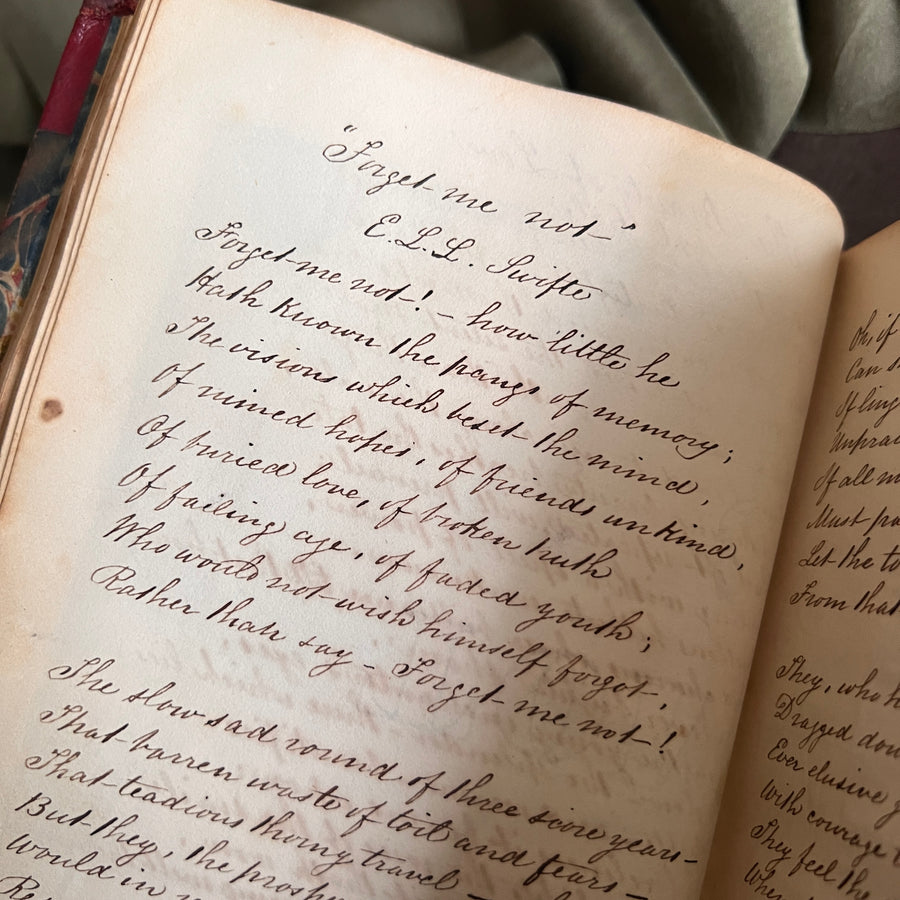 "Forget-me not"
E. L. L. Swifte
Forget-me not! – how little he
Hath known the pangs of memory;
The visions which beset the mind,
Of ruined hopes, of friends unkind,
Of buried love, of broken truth
Of failing age, of faded youth;
Who would not wish himself forgot,
Rather than say – Forget-me not!
The slow sad round of three score years –
That barren waste of toil and tears –
That teadious thorny travel –
But they, the
Would in
Oh, if
Can
If
If all
Must
Let the
From that
They, who
Dragged
Ever elusive
With courage
They feel the